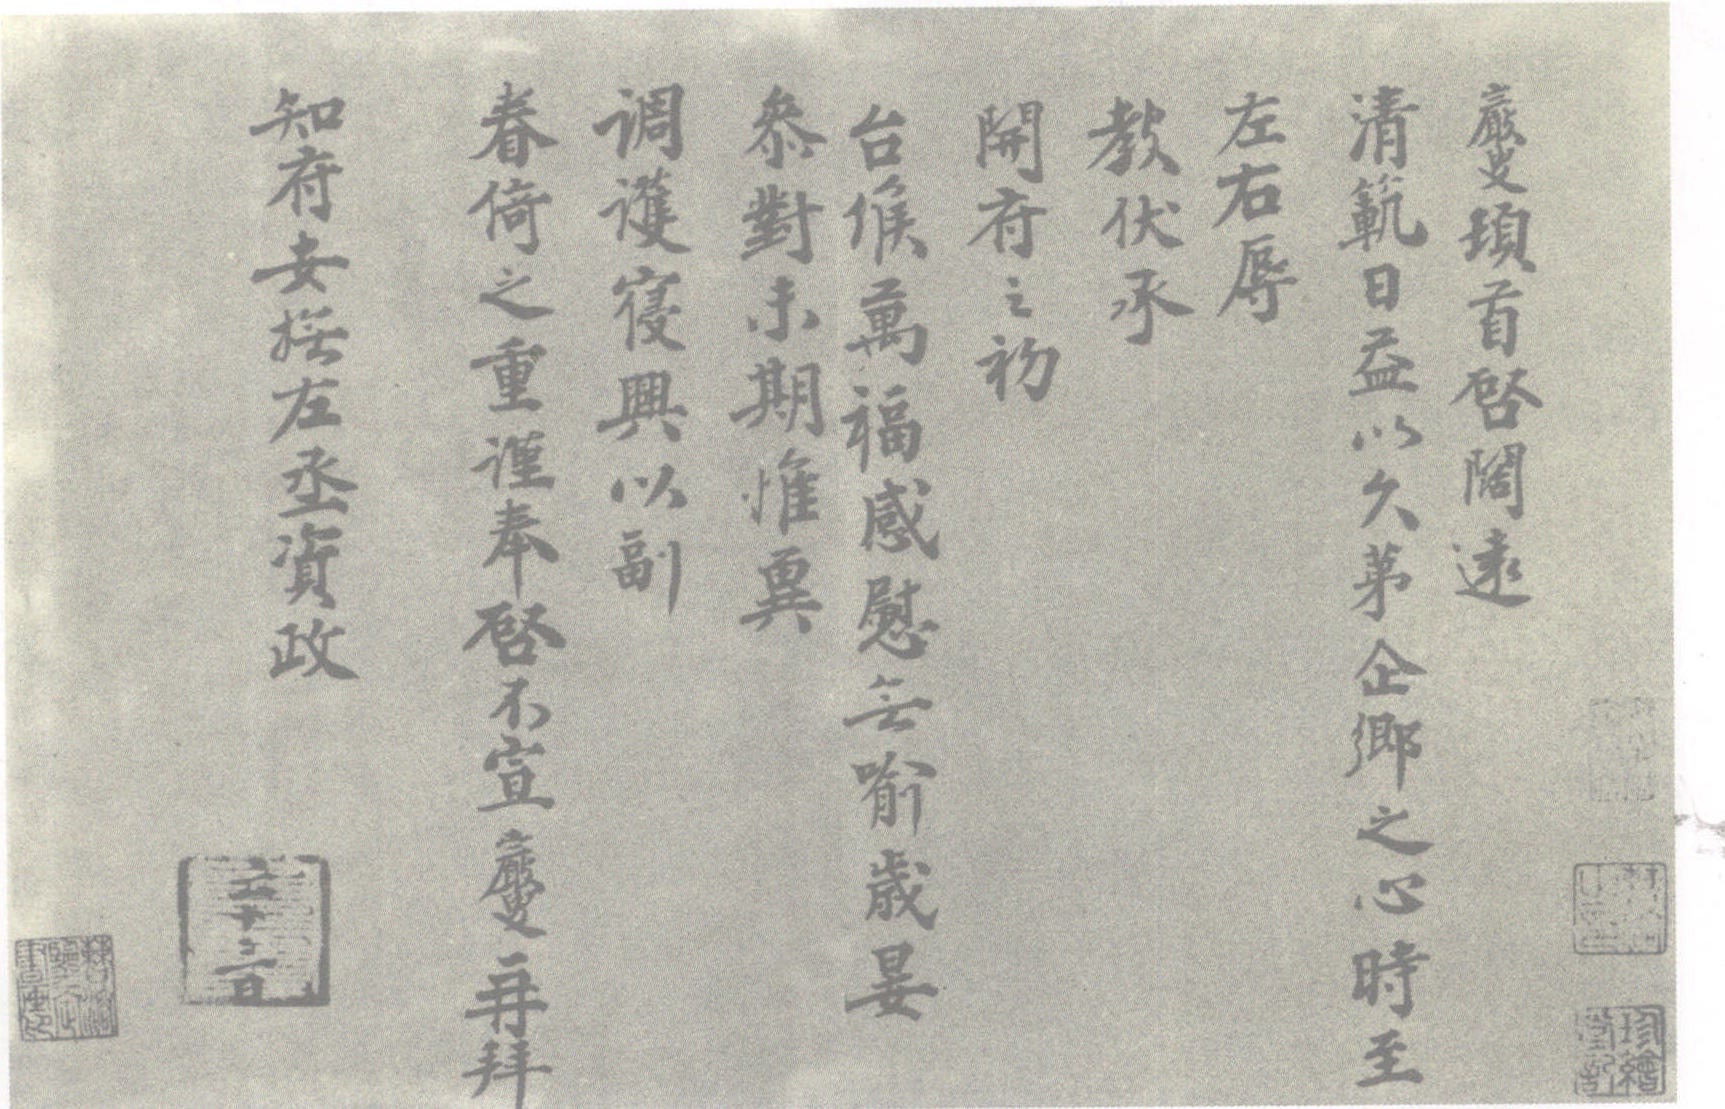 巖叟頓首啓闊遠
清範日益以久第企鄉之心時至
左右辱
教伏承
開府之初
台候萬福感慰無喻歲晏
叅對未期惟冀
調護寢興以副
眷倚之重謹奉啓不宣巖叟再拜
知府安撫左丞資政
珍繪堂記